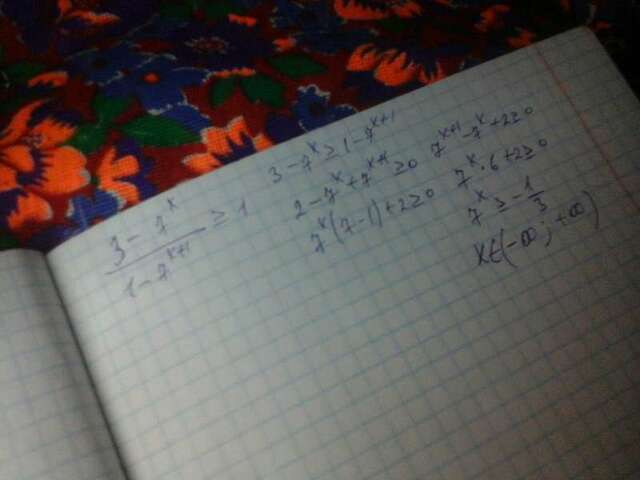 (3 - 7^x)/(1 - 7^(x+1)) ≥ 1
3 - 7^x ≥ 1 - 7^(x+1)
2 - 7^x + 7^(x+1) ≥ 0
7^x(7-1) + 2 ≥ 0
7^(x+1) - 7^x + 2 ≥ 0
7^x · 6 + 2 ≥ 0
7^x ≥ -1/3
x∈(-∞; +∞)